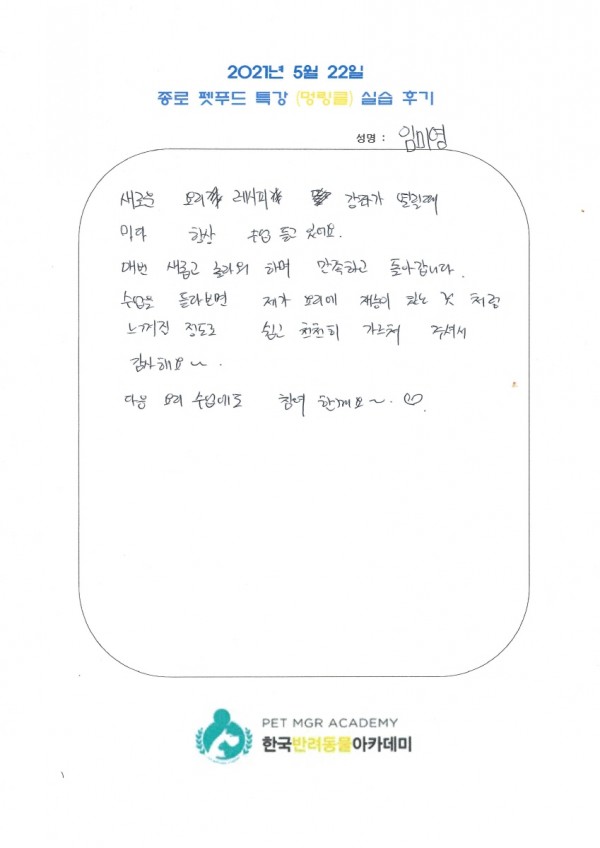 2021년 5월 22일
종로 펫푸드 특강 (멍링클) 실습 후기
성명 : 임미영
새로운 요리 레시피 강좌가 열릴때
마다 항상 수업 듣고 있어요.
매번 새롭고 놀라워 하며 만족하고 돌아갑니다.
수업을 듣다보면 제가 요리에 재능이 있는 것 처럼
느껴진 정도로 쉽고 천천히 가르쳐 주셔서
감사해요~.
다음 요리 수업에도 참여 한께요~. ♡.
PET MGR ACADEMY
한국반려동물아카데미